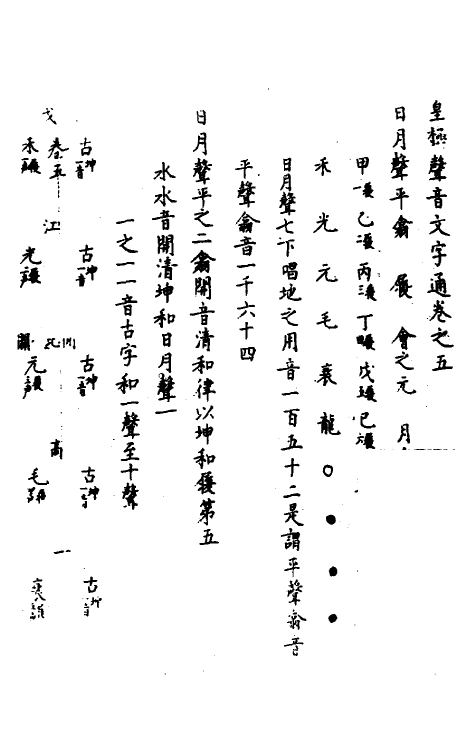 皇極聲音文字通卷之五
日月聲平翕 㬊 會之元 月
甲一 乙二 丙三 丁四 戊五 己六
禾光元毛衰龍○●●●
日月聲七下唱地之用音一百五十二是謂平聲翕音
平聲翕音一千六十四
日月聲平之二翕開音清和律以坤和 第五
水水音開清坤和日月聲一
一之一一音古字和一聲至十聲
古坤一音 古坤一音 古坤一音 古坤一音 古
戈 江 高 一
禾 光 元 毛 衰